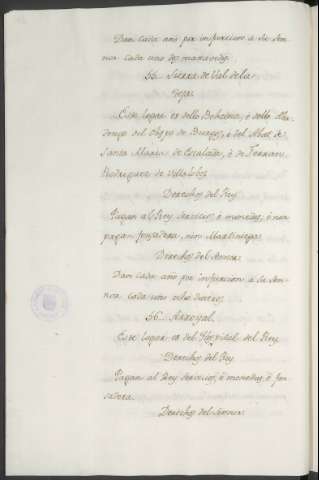 Dan cada año por infurcion à su Sen-
nor cada uno dos maravedis.
55. Sierra de Val de la-
deja.
Este logar es dello Behetria, è dello Aba-
dengo del Obispo de Burgos, è del Abat de
Santa Maria de Escalada, è de Ferrant
Rodriguez de Villalobos.
Derechos del Rey
Pagan al Rey servicios, è monedas, è non
pagan fonsadera, nin Martiniega.
Derechos del Sennor
Dan cada año por infurcion à su Sen-
nor cada uno ocho dineros.
56. Arroyal.
Este Logar es del Hospital del Rey.
Derechos del Rey
Pagan al Rey servicios, è monedas, è fon-
sadera.
Derechos del Sennor